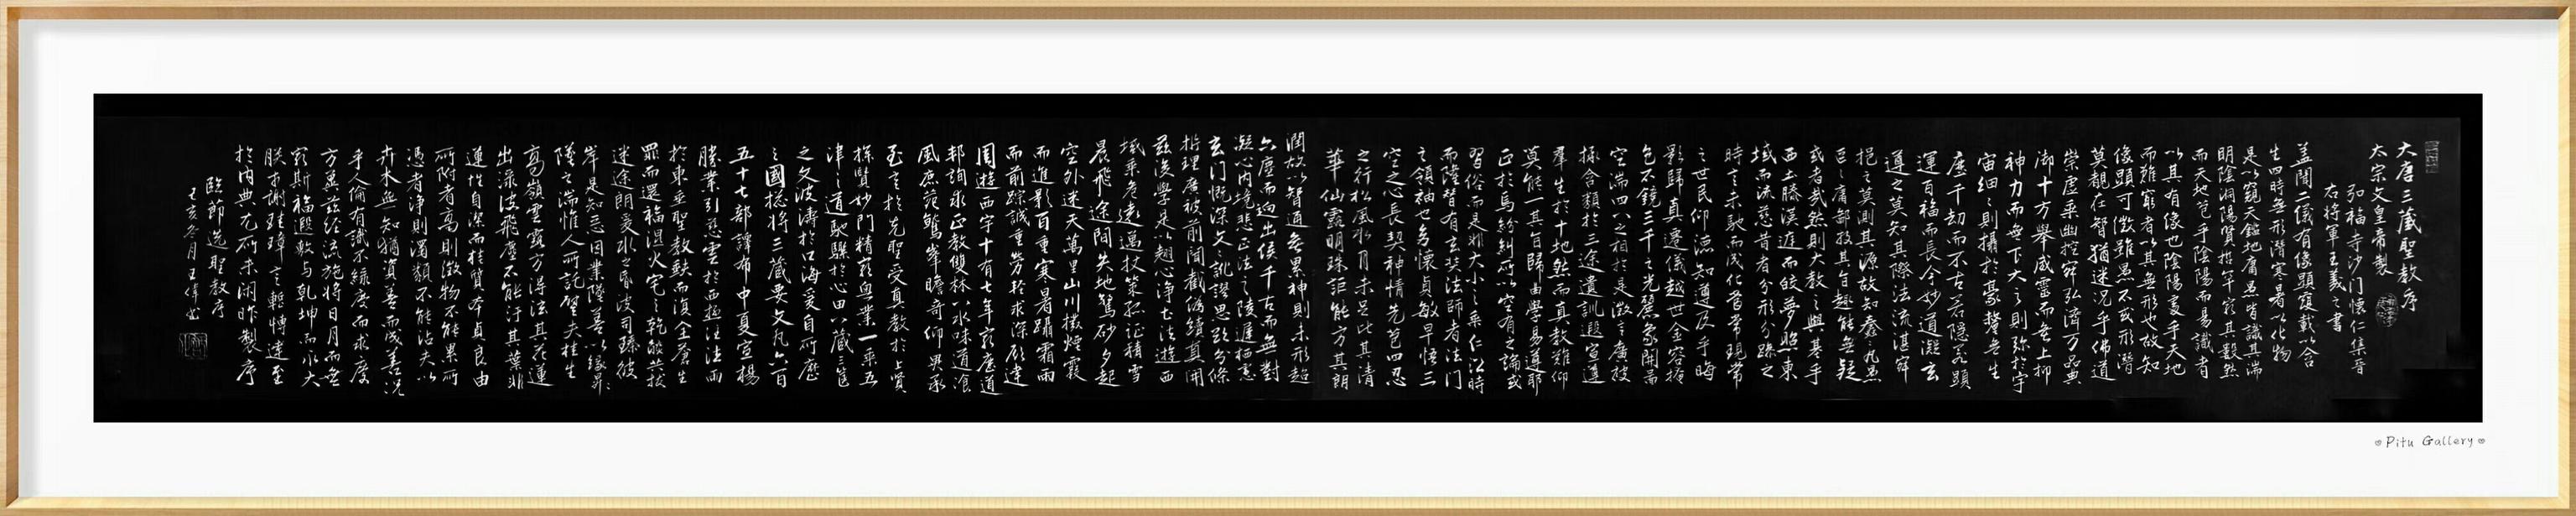 大唐三藏聖教序
太宗文皇帝製
弘福寺沙門懷仁集晉
右將軍王羲之書
蓋聞二儀有像顯覆載以含
生四時無形潛寒暑以化物
是以窺天鑑地庸愚皆識其端
明陰洞陽賢哲罕窮其數然
而天地苞乎陰陽而易識者
以其有像也陰陽處乎天地
而難窮者以其無形也故知
像顯可徵雖愚不惑形潛
莫覩在智猶迷況乎佛道
崇虛乘幽控寂弘濟万品典
御十方舉威靈而無上抑
神力而無下大之則弥於宇
宙細之則攝於豪釐無生
歷千劫而不古若隱若顯
運百福而長今妙道凝玄
遵之莫知其際法流湛寂
挹之莫測其源故知蠢々凡愚
區々庸鄙投其旨趣能無疑
或者哉然則大教之興基乎
西土騰漢庭而皎夢照東
域而流慈昔者分形分跡之
時言未馳而成化當常現常
之世民仰德知遵及乎晦
影歸真遷儀越世金容掩
色不鏡三千之光麗象開圖
空端四八之相於是微言廣被
拯含類於三途遺訓遐宣導
羣生於十地然而真教難仰
莫能一其旨歸曲學易遵耶
正於焉紛糾所以空有之論或
習俗而是非大小之乘乍沿時
而隆替有玄奘法師者法門
之領袖也幼懷貞敏早悟三
空之心長契神情先苞四忍
之行松風水月未足比其清
華仙露明珠詎能方其朗
潤故以智通無累神測未形超
六塵而迥出隻千古而無對
凝心內境悲正法之陵遲栖慮
玄門慨深文之訛謬思欲分條
析理廣彼前聞截偽續真開
茲後學是以翹心淨土法遊西
域乘危遠邁杖策孤征積雪
晨飛途間失地驚砂夕起
空外迷天萬里山川撥煙霞
而進影百重寒暑躡霜雨
而前蹤誠重勞輕求深願達
周遊西宇十有七年窮歷道
邦詢求正教雙林八水味道湌
風鹿菀鷲峯瞻奇仰異承
至言於先聖受真教於上賢
探賾妙門精窮奧業一乘五
律之道馳驟於心田八藏三篋
之文波濤於口海爰自所歷
之國揔將三藏要文凡六百
五十七部譯布中夏宣揚
勝業引慈雲於西極注法雨
於東垂聖教缺而復全蒼生
罪而還福濕火宅之乾燄共拔
迷途朗愛水之昏波同臻彼
岸是知惡因業墜善以緣昇
墜之端惟人所託譬夫桂生
高嶺雲露方得泫其花蓮
出淥波飛塵不能汙其葉非
蓮性自潔而桂質本貞良由
所附者高則微物不能累所
憑者淨則濁類不能沾夫以
卉木無知猶資善而成善況
乎人倫有識不緣慶而求慶
方冀茲經流施將日月而無
窮斯福遐敷与乾坤而永大
朕才謝珪璋言慚博達至
於內典尤所未閑昨製序
臨節選聖教序
冬月王偉書
Pitu Gallery